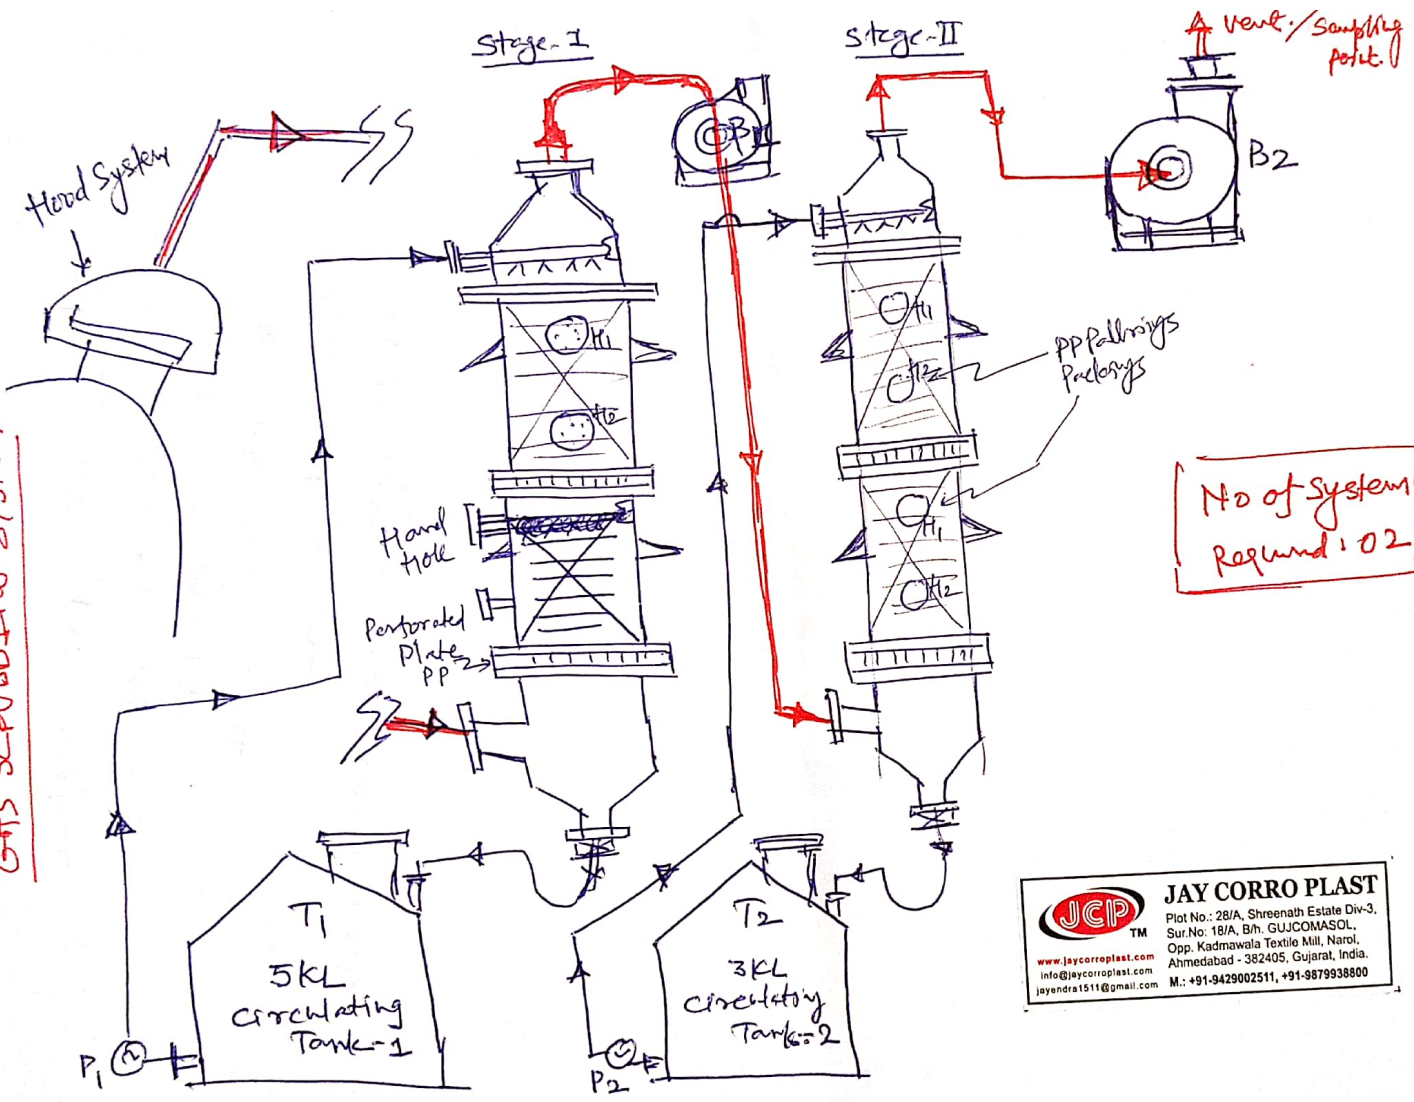 Stage-I
Stage-II
vent./Sampling
point.
Hood System
B
B2
H1
H2
H1
H2
PP Pallrings
Packings
Hand
Hole
H1
H2
Perforated
Plate
PP
No of System
Required: 02
GAS SCRUBBING
T1
5KL
Circulating
Tank-1
P1
T2
3KL
Circulating
Tank-2
P2
JCP
TM
www.jaycorroplast.com
info@jaycorroplast.com
jayendra1511@gmail.com
JAY CORRO PLAST
Plot No.: 28/A, Shreenath Estate Div-3,
Sur.No: 18/A, B/h. GUJCOMASOL,
Opp. Kadmawala Textile Mill, Narol,
Ahmedabad - 382405, Gujarat, India.
M.: +91-9429002511, +91-9879938800